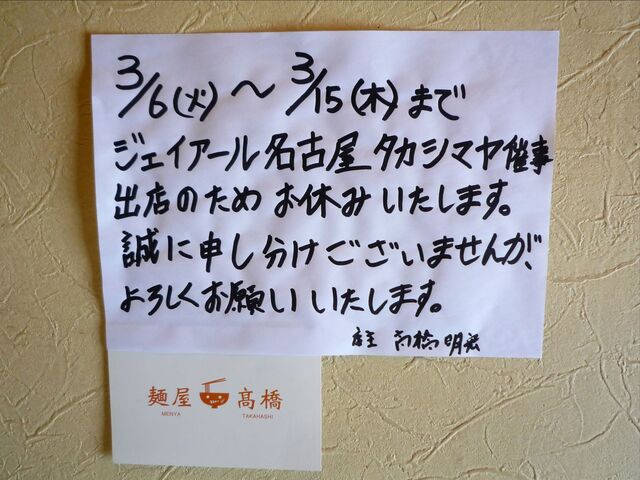 3/6(火)〜3/15(木)まで
ジェイアール名古屋タカシマヤ催事
出店のためお休みいたします。
誠に申し分けございませんが、
よろしくお願いいたします。
店主 高橋明宏
麺屋 高橋
MENYA TAKAHASHI